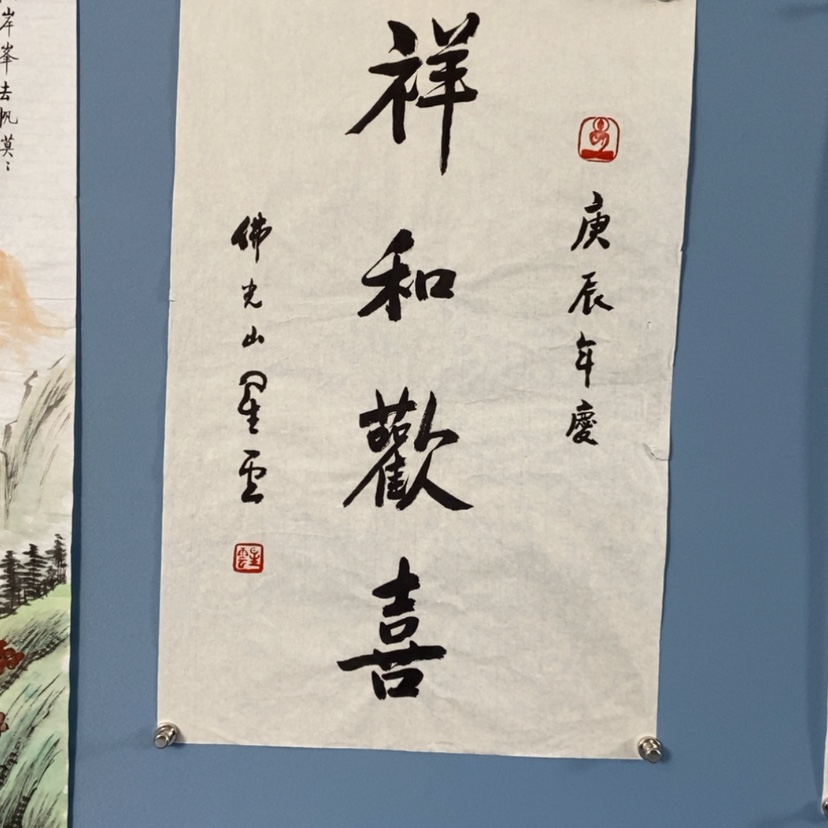 庚辰年慶
祥和歡喜
佛光山星雲
星雲
岸峯去帆莫〻